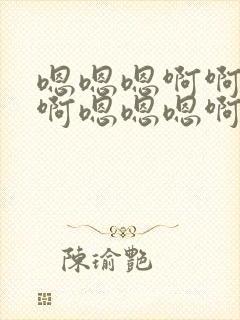 嗯嗯嗯啊啊
啊嗯嗯嗯啊
陳瑜艷